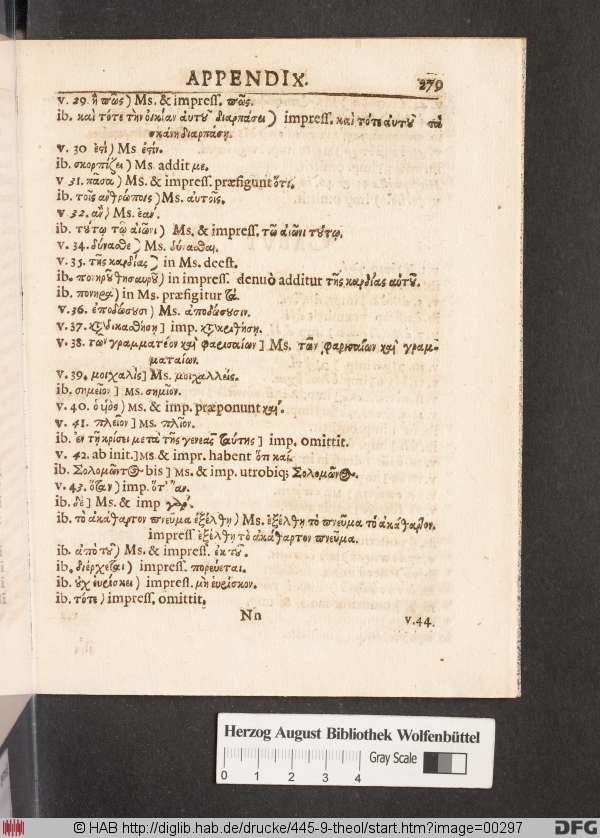 APPENDIX. 279
v. 29. ἢ πῶς) Ms. & impress. πῶς.
ib. καὶ τότε τὴν οἰκίαν αὐτοῦ διαρπάσει) impress. καὶ τότε αὐτοῦ τὰ
σκεύη διαρπάση.
v. 30 ἐστὶ) Ms ἐστίν.
ib. σκορπίζει) Ms. addit με.
v 31. πᾶσα) Ms. & impress. præfigunt ὅτι.
ib. τοῖς ἀνθρώποις) Ms. αὐτοῖς.
v 32. ἂν) Ms. ἐὰν.
ib. τούτῳ τῷ αἰῶνι) Ms. & impress. τῷ αἰῶνι τούτῳ.
v. 34. δύνασθε) Ms. δύνασθαι.
v. 35. τῆς καρδίας) in Ms. deest.
ib. πονηροῦ θησαυροῦ) in impress. denuò additur τῆς καρδίας αὐτοῦ.
ib. πονηρὰ) in Ms. præfigitur τὰ.
v. 36. ἀποδώσουσι) Ms. ἀποδώσουσιν.
v. 37. καταδικασθήση] imp. κατακριθήση.
v. 38. τῶν γραμματέον καὶ φαρισαίων] Ms. τῶν φαρισαίων καὶ γραμ-
ματαίων.
v. 39. μοιχαλὶς] Ms. μοιχαλλεὶς.
ib. σημεῖον] Ms. σημῖον.
v. 40. ὁ υἱὸς) Ms. & imp. præponunt καὶ.
v. 41. πλεῖον] Ms. πλῖον.
ib. ἐν τῇ κρίσει μετὰ τῆς γενεας ταύτης] imp. omittit.
v. 42. ab init.] Ms. & impr. habent ὅτι καὶ.
ib. Σολομῶντος bis] Ms. & imp. utrobiq; Σολομῶνος.
v. 43. ὅταν) imp. ὅτ' ἂν.
ib. δὲ] Ms. & imp γὰρ.
ib. τὸ ἀκάθαρτον πνεῦμα ἐξέλθῃ) Ms. ἐξέλθῃ τὸ πνεῦμα τὸ ἀκάθαρτον.
impress ἐξέλθῃ τὸ ἀκάθαρτον πνεῦμα.
ib. ἀπὸ τοῦ) Ms. & impress. ἐκ τοῦ.
ib. διέρχεται) impress. πορεύεται.
ib. οὐχ εὑρίσκει) impress. μὴ εὑρίσκον.
ib. τότε) impress. omittit.
Nn v. 44.
Herzog August Bibliothek Wolfenbüttel
0 1 2 3 4 Gray Scale
© HAB http://diglib.hab.de/drucke/445-9-theol/start.htm?image=00297 DFG